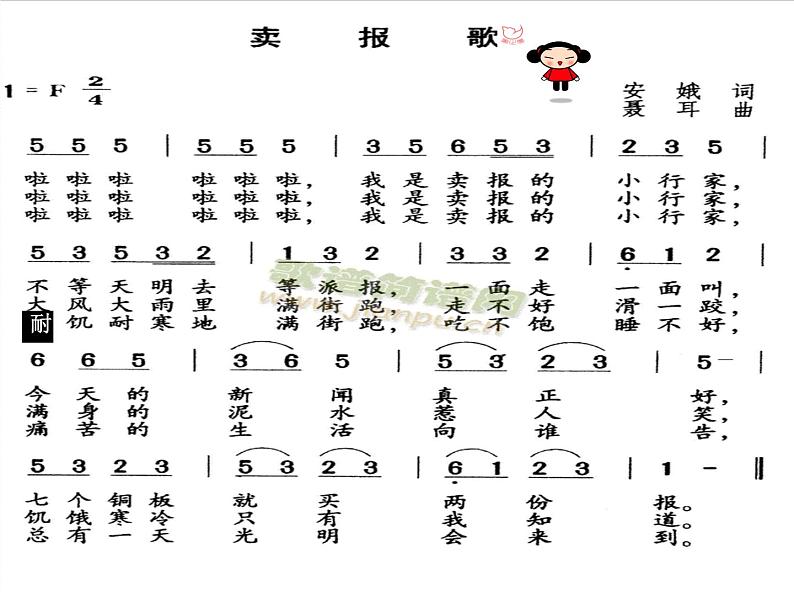 卖 报 歌
1 = F 2/4
安 娥 词
聂 耳 曲
5 5 5 | 5 5 5 | 3 5 6 5 3 | 2 3 5 |
啦 啦 啦 啦 啦 啦, 我 是 卖 报 的 小 行 家,
啦 啦 啦 啦 啦 啦, 我 是 卖 报 的 小 行 家,
啦 啦 啦 啦 啦 啦, 我 是 卖 报 的 小 行 家,
5 3 5 3 2 | 1 3 2 | 3 3 2 | 6 1 2 |
不 等 天 明 去 等 派 报, 一 面 走 一 面 叫,
大 风 大 雨 里 满 街 跑, 走 不 好 滑 一 跤,
耐 饥 耐 寒 地 满 街 跑, 吃 不 饱 睡 不 好,
歌谱简谱网
www.jianpu.cn
6 6 5 | 3 6 5 | 5 3 2 3 | 5 — |
今 天 的 新 闻 真 正 好,
满 身 的 泥 水 惹 人 笑,
痛 苦 的 生 活 向 谁 告,
5 3 2 3 | 5 3 2 3 | 6 1 2 3 | 1 - ‖
七 个 铜 板 就 买 两 份 报。
饥 饿 寒 冷 只 有 我 知 道。
总 有 一 天 光 明 会 来 到。